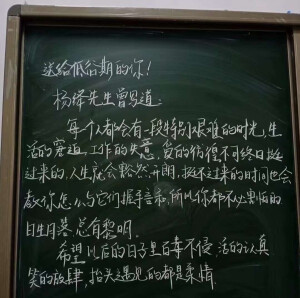 送给低谷期的你！
杨绛先生曾写道：
每个人都会有一段特别艰难的时光，生
活的窘迫，工作的失意，爱的彷徨不可终日，挺
过来的，人生就会豁然开朗，挺不过来的时间也会
教你怎么与它们握手言和，所以你都不必害怕的
日生月落，总有黎明。
希望以后的日子里百毒不侵，活的认真
笑的放肆，抬头遇见的都是柔情